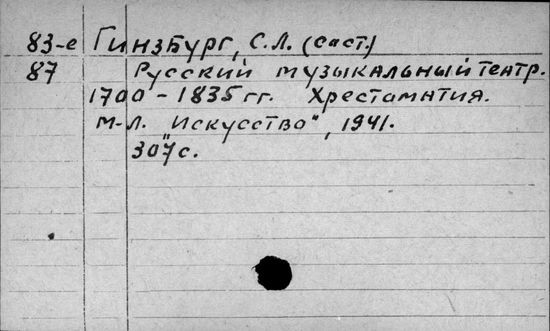 83-е Гинзбург, С.Л. (сост.)
87 Русский музыкальный театр.
1700-1835 гг. Хрестоматия.
М-Л. "Искусство", 1941.
307 с.